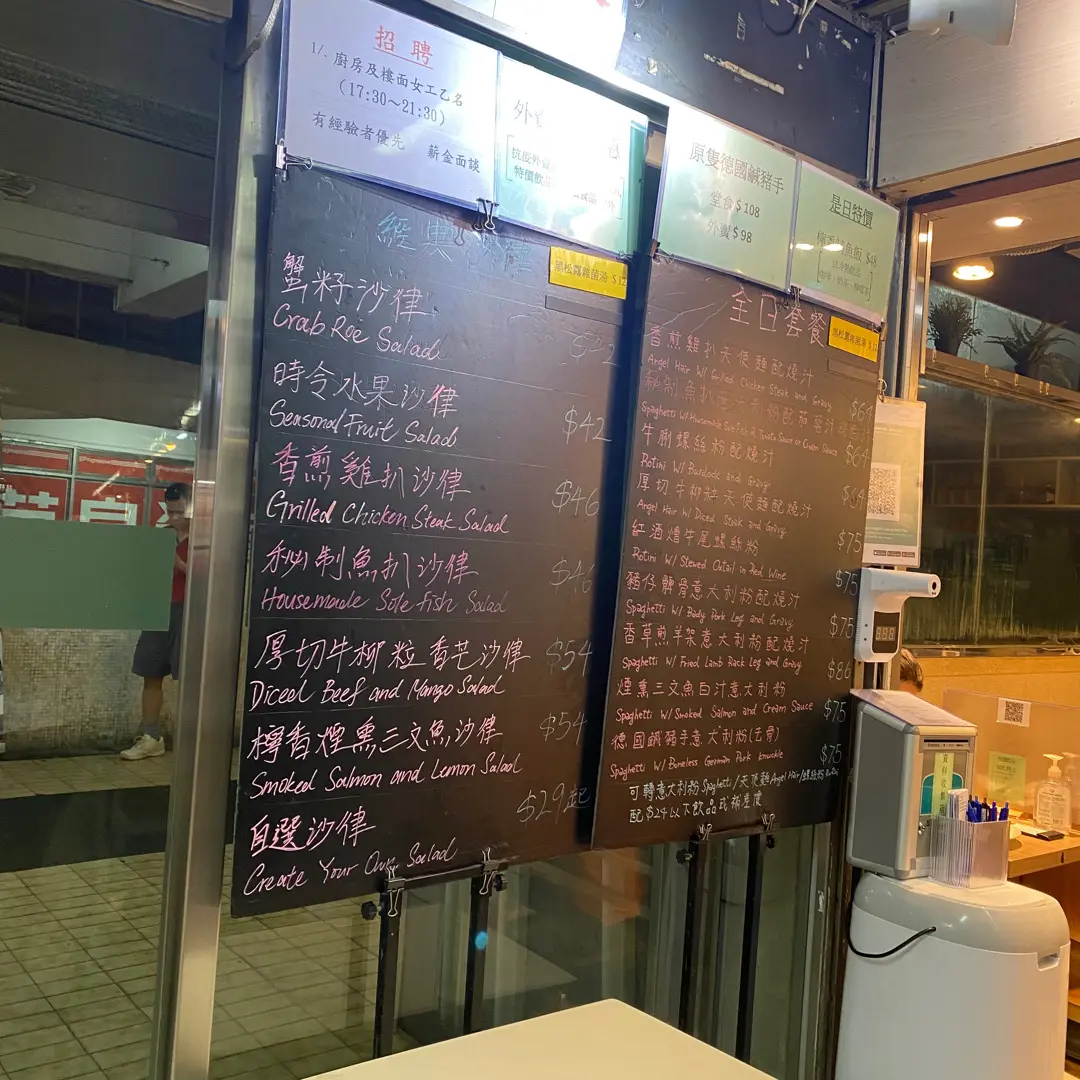 招聘
1/. 廚房及樓面女工乙名
(17:30～21:30)
有經驗者優先 薪金面談
外
抗疫外
特價飲
原隻德國鹹豬手
堂食$108
外賣$98
是日特價
魚飯 $48
經典沙律
黑松露雜菌湯 $12
蟹籽沙律
Crab Roe Salad
時令水果沙律
Seasonal Fruit Salad
$42
香煎雞扒沙律
Grilled Chicken Steak Salad
$46
秘制魚扒沙律
Housemade Sole Fish Salad
$46
厚切牛柳粒香芒沙律
Diced Beef and Mango Salad
$54
檸香煙熏三文魚沙律
Smoked Salmon and Lemon Salad
$54
自選沙律
Create Your Own Salad
$29起
全日套餐
黑松露雜菌湯 $12
香煎雞扒天使麵配燒汁
Angel Hair W/ Grilled Chicken Steak and Gravy
$64
Spaghetti W/ Housemade Sole Fish & Tomato Sauce or Cream Sauce
$64
牛脷螺絲粉配燒汁
Rotini W/ Burdock and Gravy
$64
厚切牛柳粒天使麵配燒汁
Angel Hair W/ Diced Steak and Gravy
$75
紅酒燴牛尾螺絲粉
Rotini W/ Stewed Oxtail in Red Wine
$75
豬仔髀骨意大利粉配燒汁
Spaghetti W/ Baby Pork Leg and Gravy
$75
香草煎羊架意大利粉配燒汁
Spaghetti W/ Fried Lamb Rack Leg and Gravy
$86
煙熏三文魚白汁意大利粉
Spaghetti W/ Smoked Salmon and Cream Sauce
$75
德國鹹豬手意大利粉(去骨)
Spaghetti W/ Boneless German Pork Knuckle
$75
可轉意大利粉 Spaghetti/天使麵 Angel Hair/螺絲粉 Rotini
配$24以下飲品或補差價